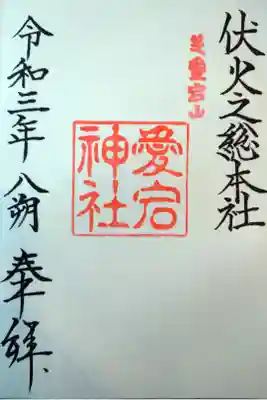 伏火之総本社
芝愛宕山
愛宕
神社
令和三年八朔 奉拝